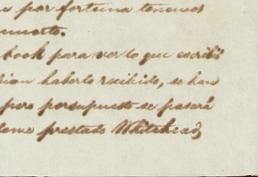 por fortuna tenemos
muerto.
book para ver lo que escribió
haberlo recibido, se han
pero por supuesto se pasará
prestado Whitehead,